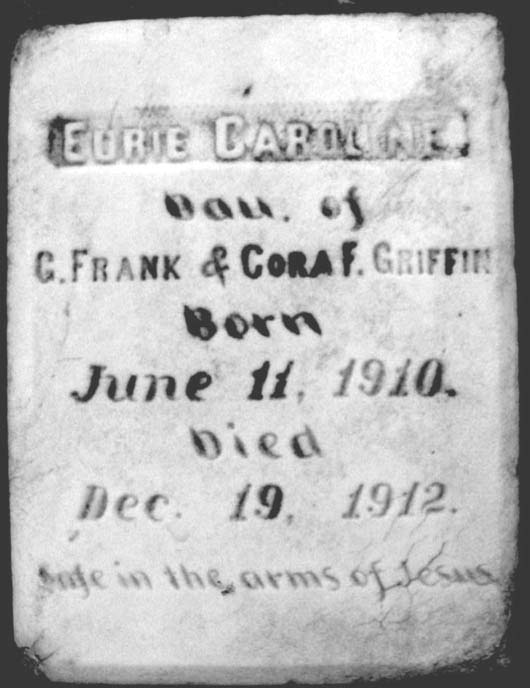 EURIE CAROLINE
Dau. of
C. FRANK & CORA F. GRIFFIN
Born
June 11, 1910.
Died
Dec. 19, 1912.
Safe in the arms of Jesus